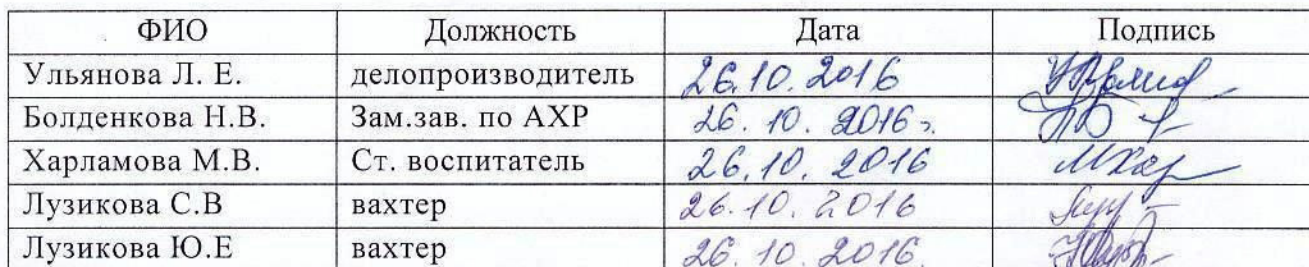 ФИО Должность Дата Подпись
Ульянова Л. Е. делопроизводитель 26.10.2016
Болденкова Н.В. Зам.зав. по АХР 26.10.2016г.
Харламова М.В. Ст. воспитатель 26.10.2016 МХар
Лузикова С.В вахтер 26.10.2016
Лузикова Ю.Е вахтер 26.10.2016.